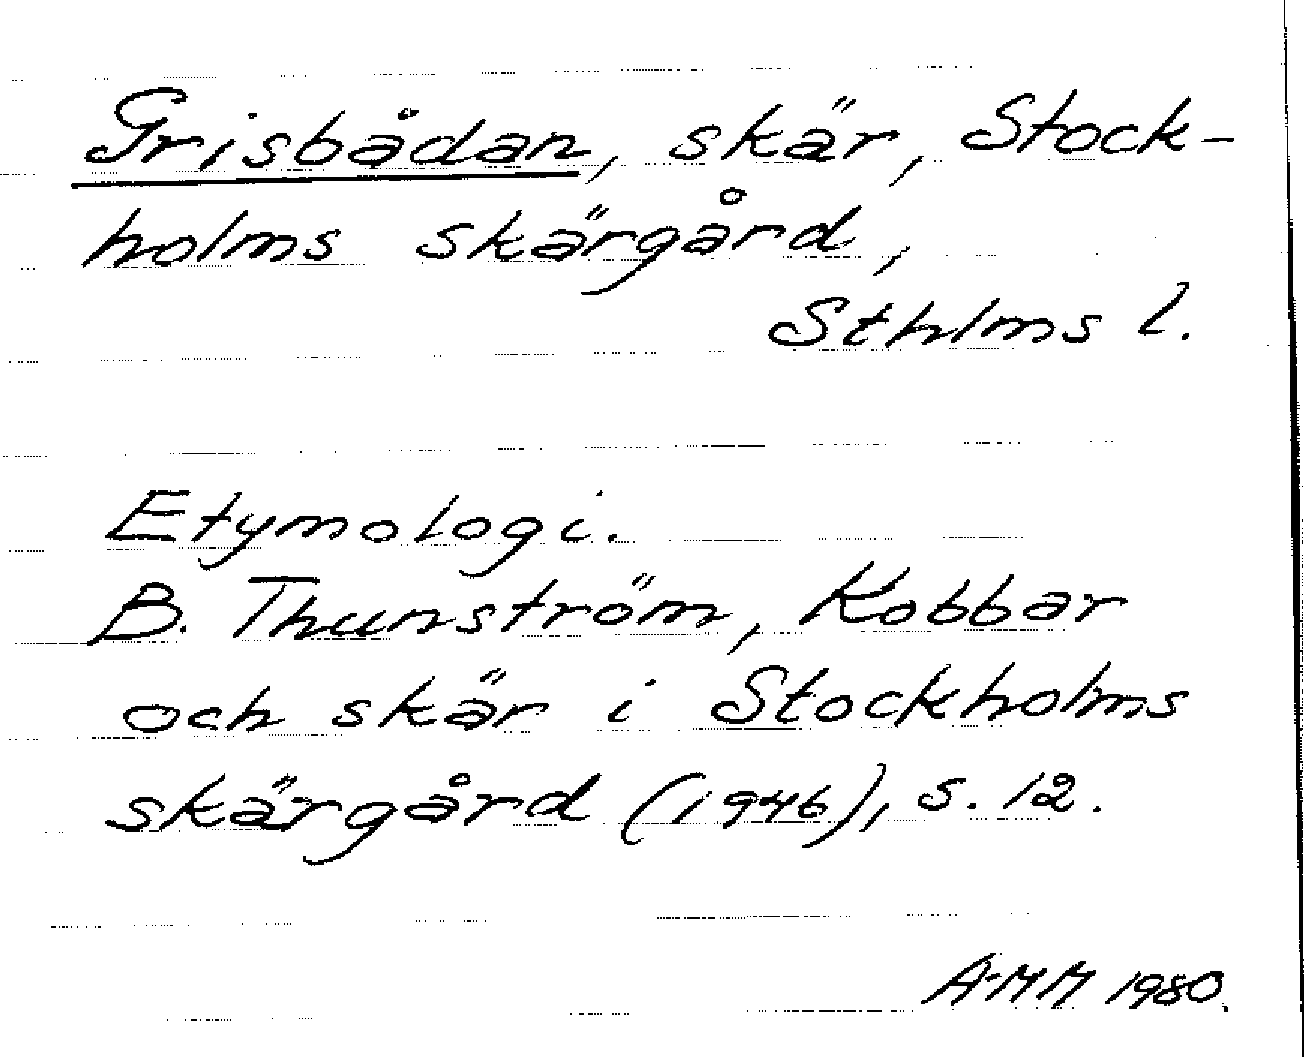 Grisbådan, skär, Stock-
holms skärgård,
Sthlms l.
Etymologi.
B. Thunström, Kobbar
och skär i Stockholms
skärgård (1946), s. 12.
A-MM 1980.